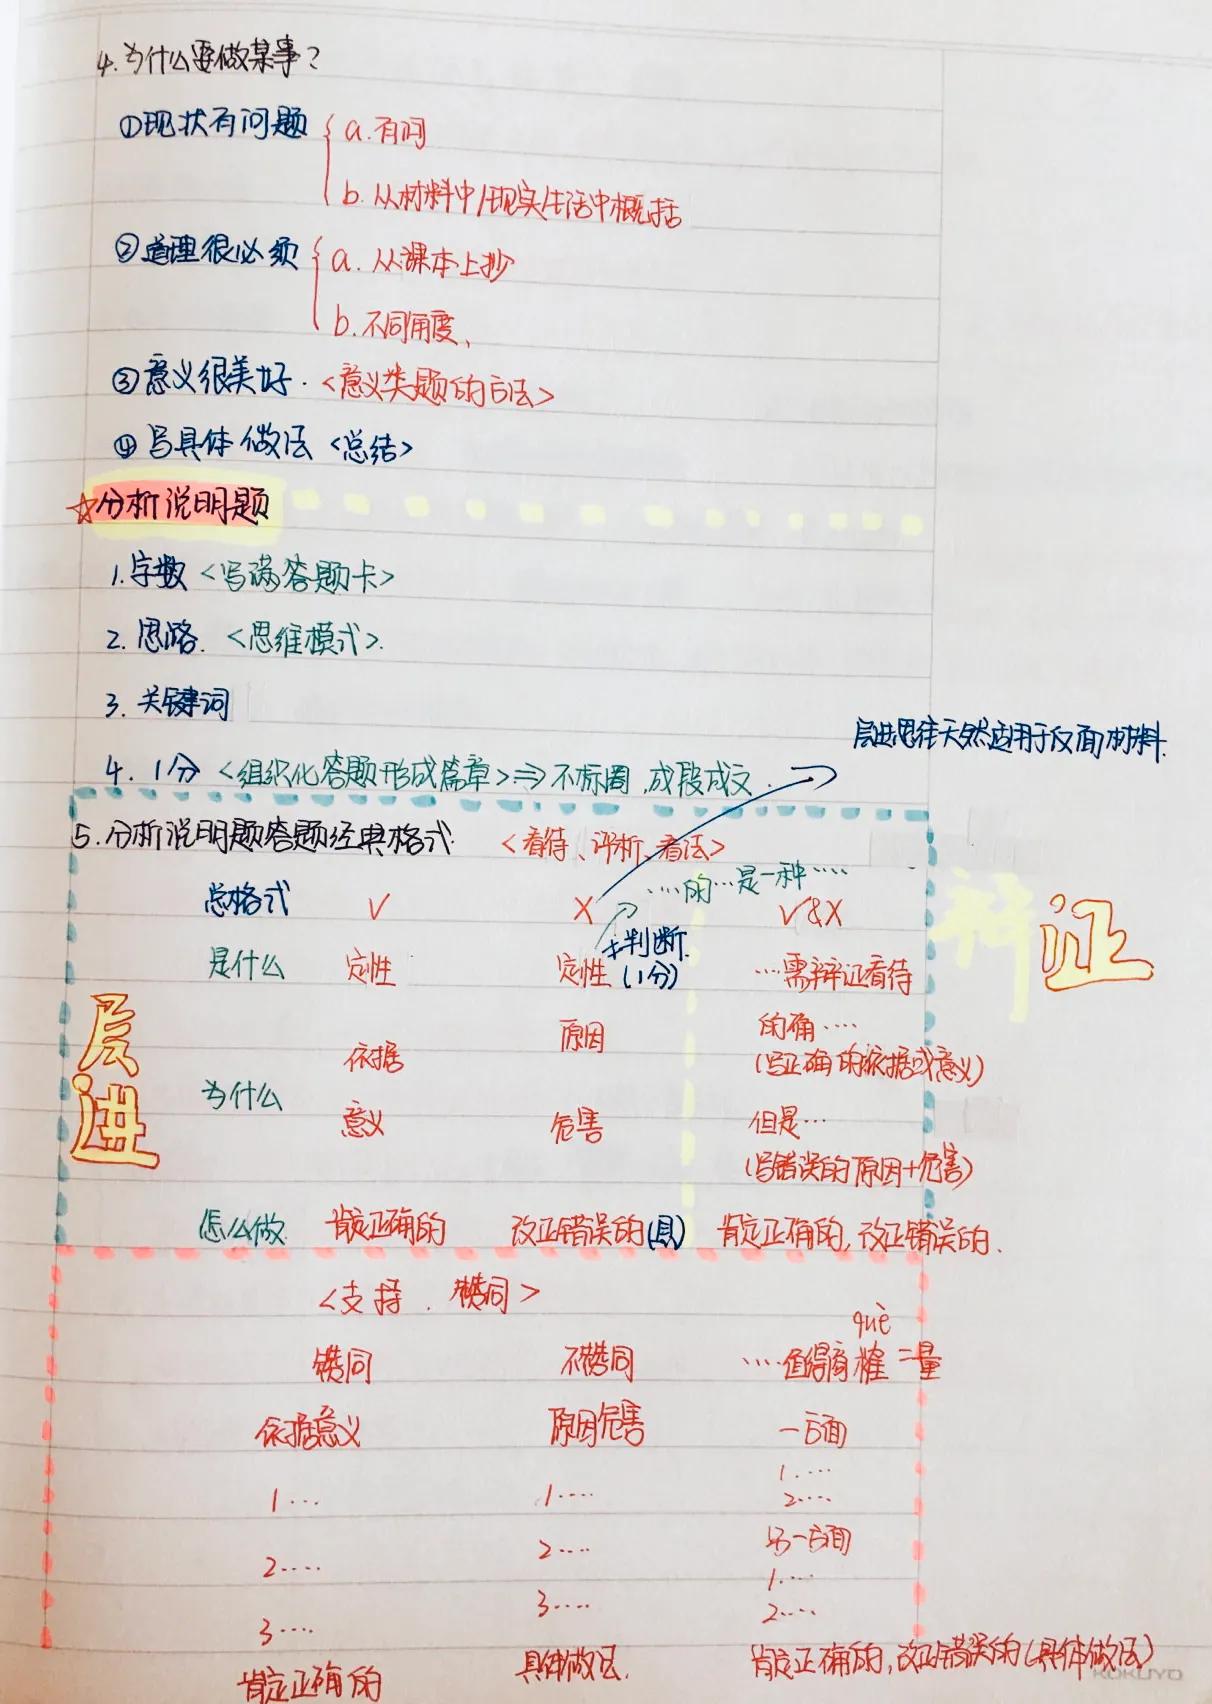 4.为什么要做某事?
①现状有问题 a.有问
b.从材料中/现实生活中概括
②道理很必须 a.从课本上抄
b.不同角度、
③意义很美好.<意义类题的方法>
④写具体做法<总结>
☆分析说明题
1.字数<写满答题卡>
2.思路.<思维模式>.
3.关键词
层进思维天然适用于反面材料.
4.1分<组织化答题形成篇章>⇒不标圈,成段成文.
5.分析说明题答题经典格式 <看待、评析、看法>
……的…是一种……
总格式 √ × √&×
是什么 定性 定性 #判断.(1分) …需辩证看待
辩证
层进
为什么 依据 原因 的确……
(写正确的依据或意义)
意义 危害 但是…
(写错误的原因+危害)
怎么做. 肯定正确的 改正错误的(具) 肯定正确的,改正错误的.
<支持、赞同>
què
赞同 不赞同 ……值得商榷=量
依据意义 原因危害 一方面
1… 1…… 1.…
2.…
2.… 2…… 另一方面
1.…
3.… 3.… 2.…
肯定正确的 具体做法. 肯定正确的,改正错误的(具体做法)
KOKUYO